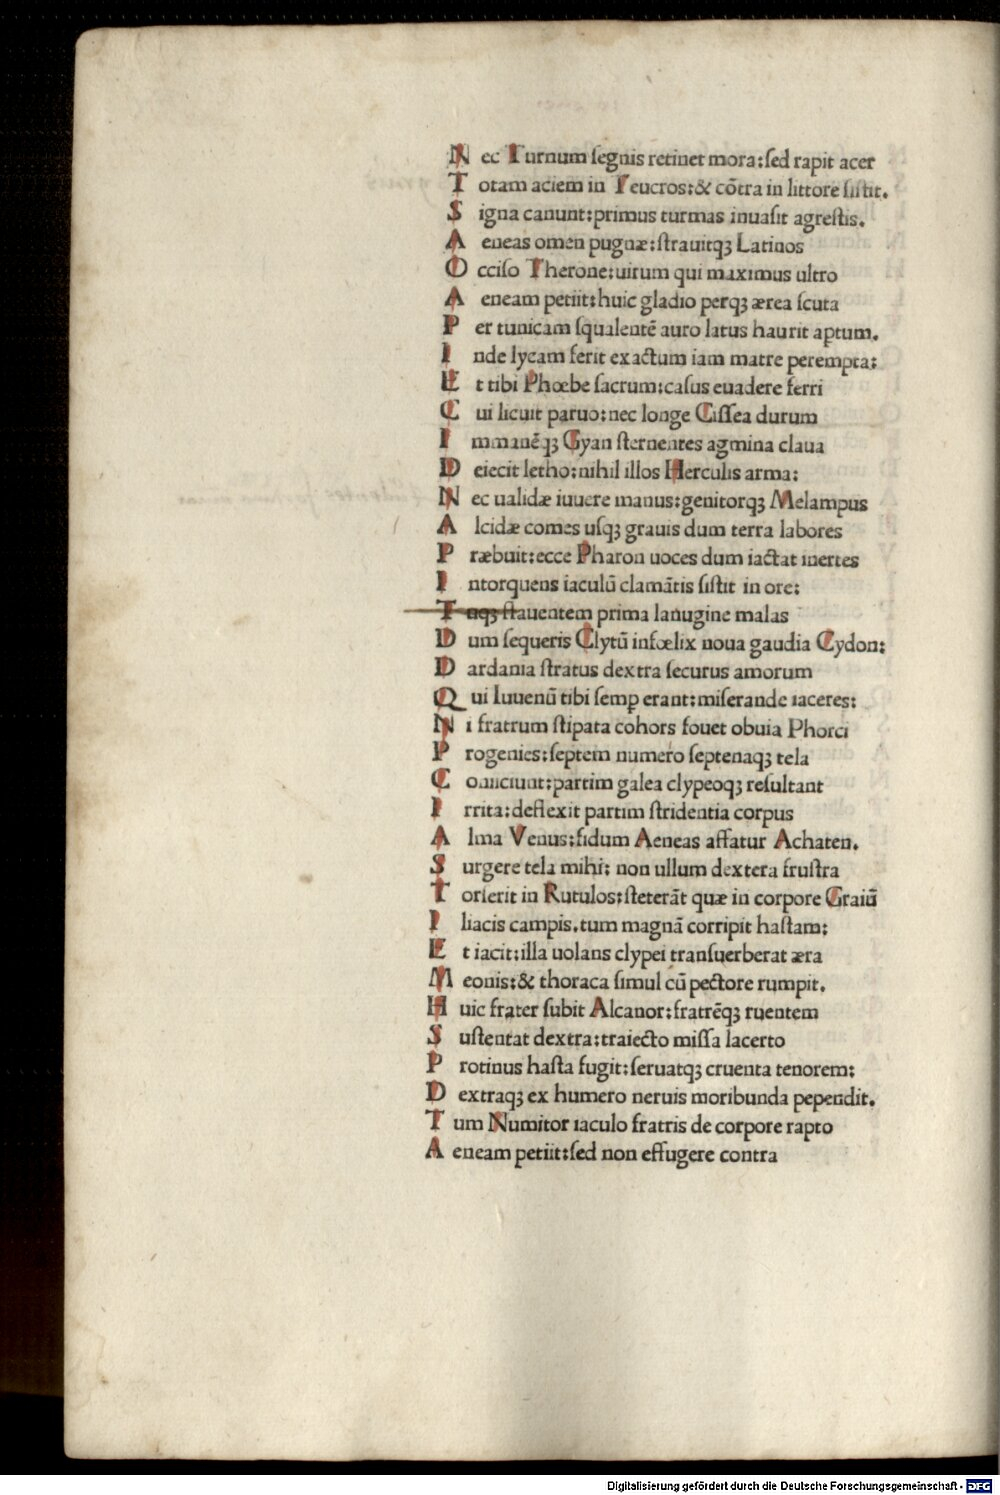 N ec Turnum ſegnis retinet mora:ſed rapit acer
T otam aciem in Teucros:& cōtra in littore ſiſtit.
S igna canunt:primus turmas inuaſit agreſtis.
A eneas omen pugnæ:ſtrauitqꝫ Latinos
O cciſo Therone:uirum qui maximus ultro
A eneam petiit:huic gladio perqꝫ ærea ſcuta
P er tunicam ſqualentē auro latus haurit aptum.
I nde lycam ferit exactum iam matre perempta:
E t tibi Phœbe ſacrum:caſus euadere ferri
C ui licuit paruo:nec longe Ciſſea durum
I mmanēqꝫ Gyan ſternentes agmina claua
D eiecit letho:nihil illos Herculis arma:
N ec ualidæ iuuere manus:genitorqꝫ Melampus
A lcidæ comes uſqꝫ grauis dum terra labores
P ræbuit:ecce Pharon uoces dum iactat inertes
I ntorquens iaculū clamātis ſiſtit in ore:
T uqꝫ ſtauentem prima lanugine malas
D um ſequeris Clytū infœlix noua gaudia Cydon:
D ardania ſtratus dextra ſecurus amorum
Q ui Iuuenū tibi ſemꝑ erant:miſerande iaceres:
N i fratrum ſtipata cohors fouet obuia Phorci
P rogenies:ſeptem numero ſeptenaqꝫ tela
C oniiciunt:partim galea clypeoqꝫ reſultant
I rrita:deflexit partim ſtridentia corpus
A lma Venus:fidum Aeneas affatur Achaten.
S urgere tela mihi: non ullum dextera fruſtra
T orſerit in Rutulos:ſteterāt quæ in corpore Graiū
I liacis campis.tum magnā corripit haſtam:
E t iacit:illa uolans clypei tranſuerberat æra
M eonis:& thoraca ſimul cū pectore rumpit.
H uic frater ſubit Alcanor:fratrēqꝫ ruentem
S uſtentat dextra:traiecto miſſa lacerto
P rotinus haſta fugit:ſeruatqꝫ cruenta tenorem:
D extraqꝫ ex humero neruis moribunda pependit.
T um Numitor iaculo fratris de corpore rapto
A eneam petiit:ſed non effugere contra
Digitalisierung gefördert durch die Deutsche Forschungsgemeinschaft - DFG